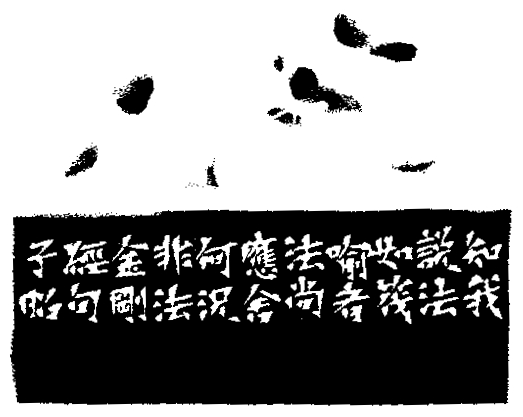 知我
說法
如筏
喻者
法尚
應舍
何況
非法
金剛
經句
子